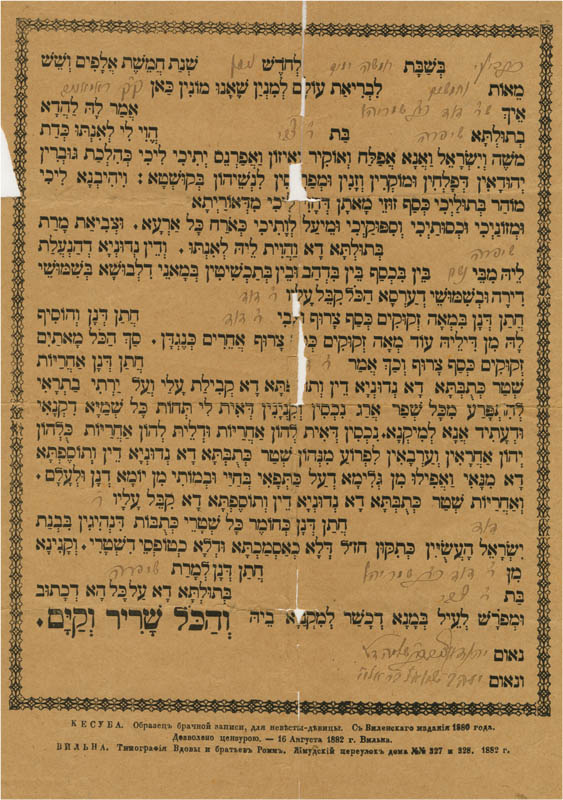 בְּשַׁבָּת לְחֹדֶשׁ שְׁנַת חֲמֵשֶׁת אֲלָפִים וְשֵׁשׁ
מֵאוֹת לִבְרִיאַת עוֹלָם לְמִנְיַן שֶׁאָנוּ מוֹנִין כַּאן
אֵיךְ אֲמַר לָהּ לַהֲדָא
בְּתוּלְתָּא שיפרה בַּת הֲוִי לִי לְאִנְתּוּ כְּדַת
משֶׁה וְיִשְׂרָאֵל וַאֲנָא אֶפְלַח וְאוֹקִיר וְאֵיזוּן וַאֲפַרְנֵס יָתִיכִי לִיכִי כְּהִלְכַת גּוּבְרִין
יְהוּדָאִין דְּפָלְחִין וּמוֹקְרִין וְזָנִין וּמְפַרְנְסִין לִנְשֵׁיהוֹן בְּקוּשְׁטָא: וִיהִיבְנָא לִיכִי
מוֹהַר בְּתוּלַיְכִי כֶּסֶף זוּזֵי מָאתָן דְּחֲזֵי לִיכִי מִדְאוֹרַיְתָא
וּמְזוֹנַיְכִי וּכְסוּתַיְכִי וְסִפּוּקַיְכִי וּמֵיעַל לְוָתַיְכִי כְּאֹרַח כָּל אַרְעָא. וּצְבִיאַת מָרַת
שיפרה בְּתוּלְתָּא דָא וַהֲוַית לֵיהּ לְאִנְתּוּ. וְדֵין נְדוּנְיָא דְּהַנְעֶלֶת
לֵיהּ מִבֵּי נשם בֵּין בִּכְסַף בֵּין בִּדְהַב וּבֵין בְּתַכְשִׁיטִין בְּמָאנֵי דִלְבוּשָׁא בְּשִׁמּוּשֵׁי
דִירָה וּבְשִׁמּוּשֵׁי דְעַרְסָא הַכֹּל קִבֵּל עָלָיו ר׳ דוד
חֲתַן דְּנַן בְּמֵאָה זְקוּקִים כֶּסֶף צָרוּף וּצְבִי ר׳ דוד חֲתַן דְּנַן וְהוֹסִיף
לָהּ מִן דִּילֵיהּ עוֹד מֵאָה זְקוּקִים כֶּסֶף צָרוּף אֲחֵרִים כְּנֶגְדָּן. סַךְ הַכֹּל מָאתַיִם
זְקוּקִים כֶּסֶף צָרוּף וְכָךְ אָמַר חֲתַן דְּנַן אַחֲרָיוּת
שְׁטַר כְּתֻבְּתָא דָא נְדוּנְיָא דֵין וְתוֹסֶפְתָּא דָא קַבִּילַת עָלַי וְעַל יַרְתַי בַּתְרָאִי
לְהִתְפָּרַע מִכָּל שְׁפַר אֲרַג נִכְסִין וְקִנְיָנִין דְּאִית לִי תְּחוֹת כָּל שְׁמַיָּא דְקָנָאִי
וּדְעָתִיד אֲנָא לְמִיקְנֵא. נִכְסִין דְּאִית לְהוֹן אַחֲרָיוּת וּדְלֵית לְהוֹן אַחֲרָיוּת כֻּלְּהוֹן
יְהוֹן אַחֲרָאִין וְעַרְבָאִין לִפְרוֹעַ מִנְּהוֹן שְׁטַר כְּתֻבְּתָא דָא נְדוּנְיָא דֵין וְתוֹסֶפְתָּא
דָא מִנַּאי וַאֲפִילוּ מִן גְּלִימָא דְעַל כַּתְפָאִי בְּחַיַּי וּבְמוֹתִי מִן יוֹמָא דְנַן וּלְעָלַם.
וְאַחֲרָיוּת שְׁטַר כְּתֻבְּתָא דָא נְדוּנְיָא דֵין וְתוֹסֶפְתָּא דָא קִבֵּל עָלָיו ר׳
דוד חֲתַן דְּנַן כְּחוֹמֶר כָּל שְׁטָרֵי כְּתֻבּוֹת דְּנָהֲגִין בִּבְנַת
יִשְׂרָאֵל הָעֲשׂוּיִין כְּתִקּוּן חז״ל דְּלָא כְאַסְמַכְתָּא וּדְלָא כְטוֹפְסֵי דִשְׁטָרֵי. וְקָנִינָא
מִן ר׳ דוד חֲתַן דְּנַן לְמָרַת שיפרה
בַּת ר׳ בְּתוּלְתָּא דָא עַל כָּל הָא דְכָתוּב
וּמְפֹרָשׁ לְעֵיל בְּמָנָא דְכָשֵׁר לְמִקְנְיָא בֵיהּ וְהַכֹּל שָׁרִיר וְקַיָּם.
נְאוּם
וּנְאוּם
КЕСУБА. Образецъ брачной записи, для невѣсты-дѣвицы. Съ Виленскаго изданія 1880 года.
Дозволено цензурою. — 16 Августа 1882 г. Вильна.
ВИЛЬНА. Типографія Вдовы и братьевъ Роммъ. Жмудскій переулокъ дома №№ 327 и 328. 1882 г.